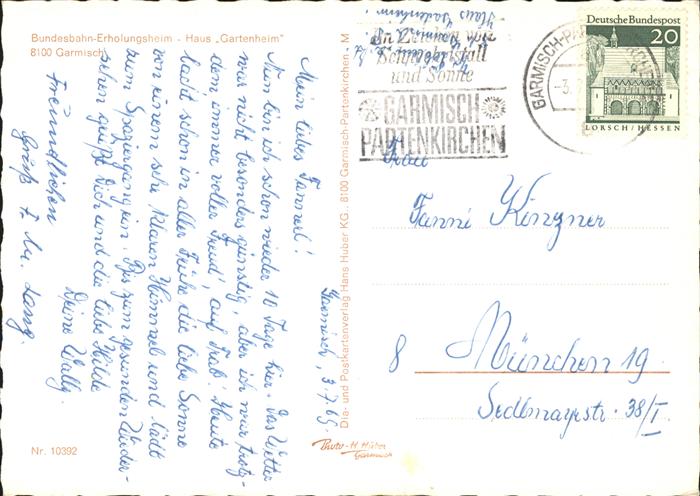 Bundesbahn-Erholungsheim - Haus „Gartenheim"
8100 Garmisch
Garmisch, 3.7.69
Mein liebes Fannerl!
Nun bin ich schon wieder 10 Tage hier. Das Wetter
war nicht besonders günstig, aber ich war trotz-
dem immer voller Freud', auf Trab! Heute
lacht schon in aller Frühe die liebe Sonne
von einem sehr klaren Himmel und lädt
zum Spaziergang ein. Bis zum gesunden Wieder-
sehen grüßt Dich und die liebe Hilde
Deine Wally.
Freundlichen
Gruß
Lang.
Nr. 10392
Dia- und Postkartenverlag Hans Huber KG., 8100 Garmisch-Partenkirchen - M
Photo-H. Huber
Garmisch
Haus Gartenheim
Schneekristall
und Sonne
GARMISCH
PARTENKIRCHEN
GARMISCH-PA
Deutsche Bundespost
20
LORSCH / HESSEN
Frau
Fanni Kinzner
8 München 19
Sedlmayrstr. 38/I